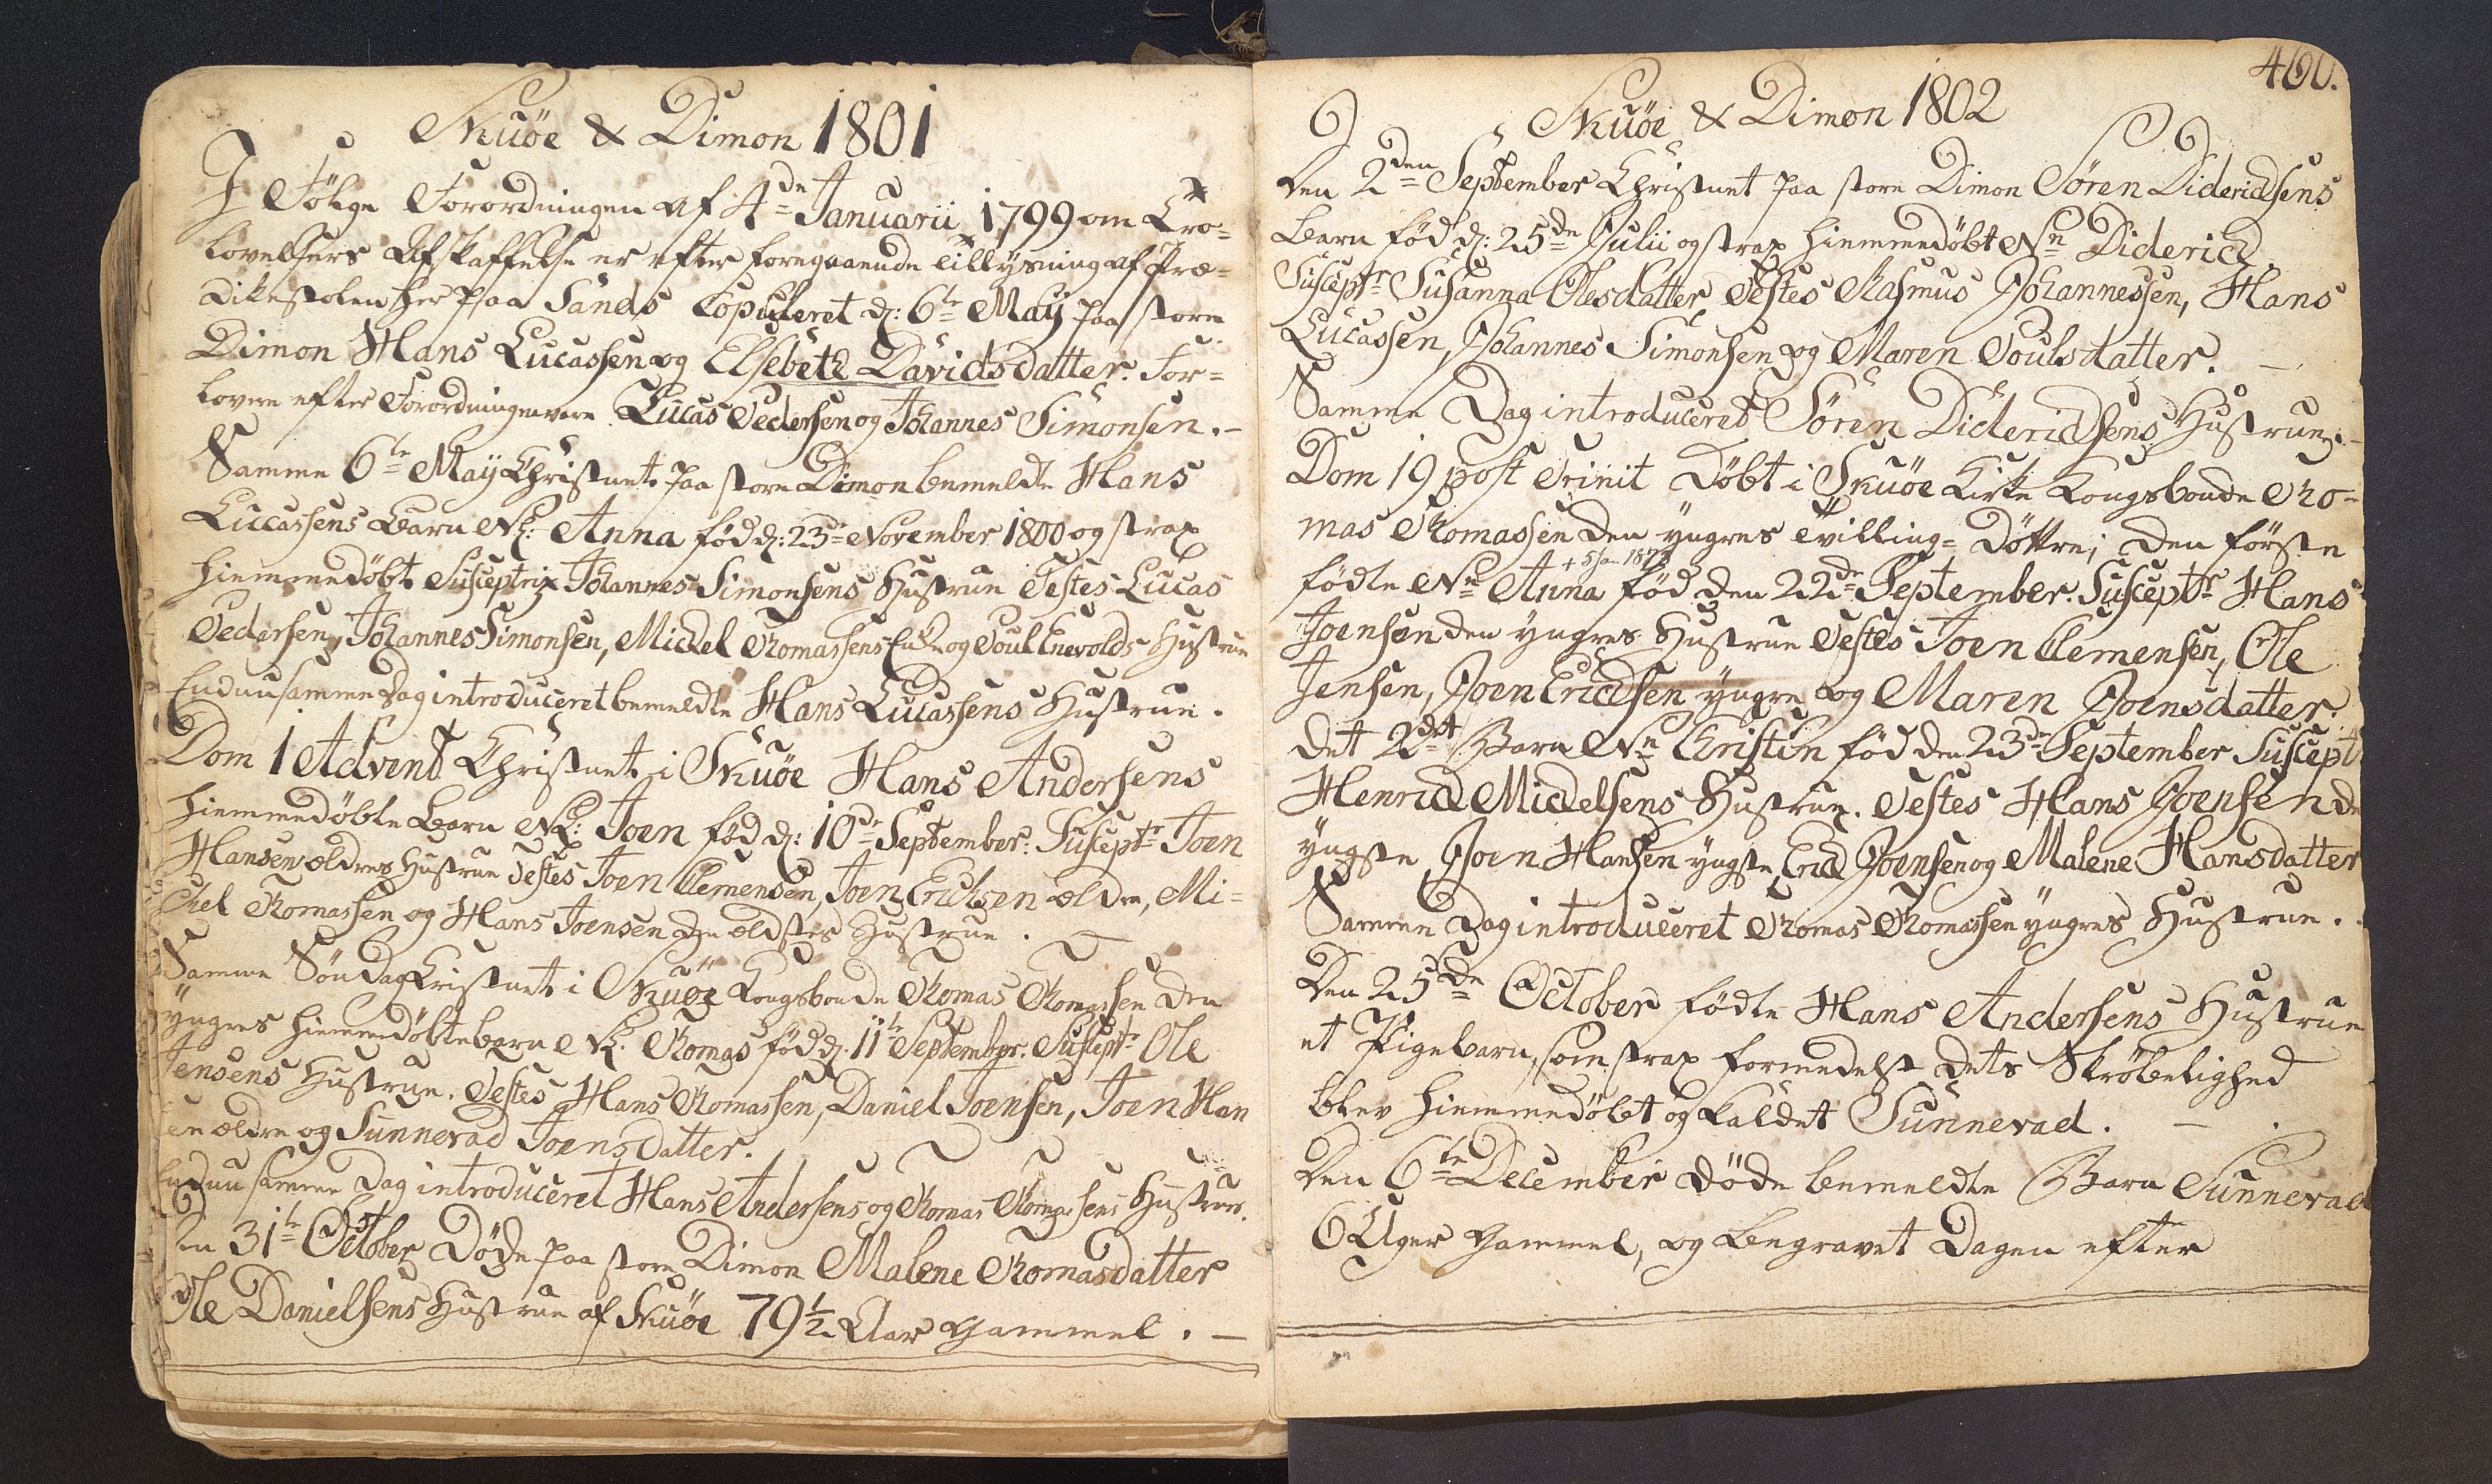 Skuöe & Dimon 1801
I Fölge Forordningen af 4de Januarii 1799 om Tro-
lovelsers Afskaffelse er efter foregaaende tillysning af Præ-
dikestolen her paa Sands Copuleret d: 6te Maÿ paa store
Dimon Hans Lucassen og Elsebeth Davidsdatter. For-
lovere efter Forordningen vare Lucas Pedersen og Johannes Simonsen. -
Samme 6te Maÿ Christnet paa store Dimon bemeldte Hans
Lucassens Barn Nl: Anna fød d: 23de November 1800 og strax
hiemmedøbt Susceptrix Johannes Simonsens Hustrue Testes Lucas
Pedersen, Johannes Simonsen, Mickel Thomassens Enke og Poul Enevolds Hustrue
Endnu samme Dag introduceret bemeldte Hans Lucassens Hustrue.
Dom 1 Advent Christnet i Skuöe Hans Andersens
hiemmedøbte Barn Nl: Joen fød d: 10de September. Susceptr Joen
Hansen ældres Hustrue Testes Joen Clemensen, Joen Erichsen ældre, Mi-
chel Thomassen og Hans Joensen den ældstes Hustrue. -
Samme Søndag Christnet i Skuöe Kongsbonde Thomas Thomassen den
ÿngres hiemmedøbte barn Nl. Thomas fød d. 11te September. Susceptr Ole
Jensens Hustrue. Testes Hans Thomassen, Daniel Joensen, Joen Han
sen ældre og Sunnevad Joensdatter.
Endnu samme Dag introduceret Hans Andersens og Thomas Thomassens Hustruer.
Den 31te October Døde paa store Dimon Malene Thomasdatter
Ole Danielsens Hustrue af Skuöe 79½ Aar gammel. -
460.
Skuöe & Dimon 1802
Den 2den September Christnet paa store Dimon Søren Diderichsens
Barn fød d: 25de Julii og strax hiemmedøbt Nn Diderich.
Susceptr Susanna Olesdatter Testes Rasmus Johannessen, Hans
Lucassen, Johannes Simonsen og Maren Poulsdatter. -
Samme Dag introduceret Søren Diderichsens Hustrue. -
Dom 19 post Trinit Døbt i Skuöe Kirke Kongsbonde Tho-
mas Thomassen den ÿngres tvilling-Døttre; den første
+ 5 Jan 187
fødte Nn Anna fød den 22de September. Susceptr Hans
Joensen den ÿngres Hustrue Testes Joen Clemensen, Ole
Jensen, Joen Erichsen ÿngre og Maren Joensdatter.
Det 2det Barn Nn Christin fød den 23de September Suscept
Henrich Mickelsens Hustrue. Testes Hans Joensen de
ÿngste, Joen Hansen ÿngste, Erich Joensen og Malene Hansdatter
Samme Dag introduceret Thomas Thomassen ÿngres Hustrue.
Den 25de October fødte Hans Andersens Hustrue
et Pigebarn, som strax formedelst dets Skrøbelighed
blev hiemmedøbt og kaldet Sunnevad. -
Den 6te December døde bemeldte Barn Sunnevad
6 Uger gammel, og begravet Dagen efter